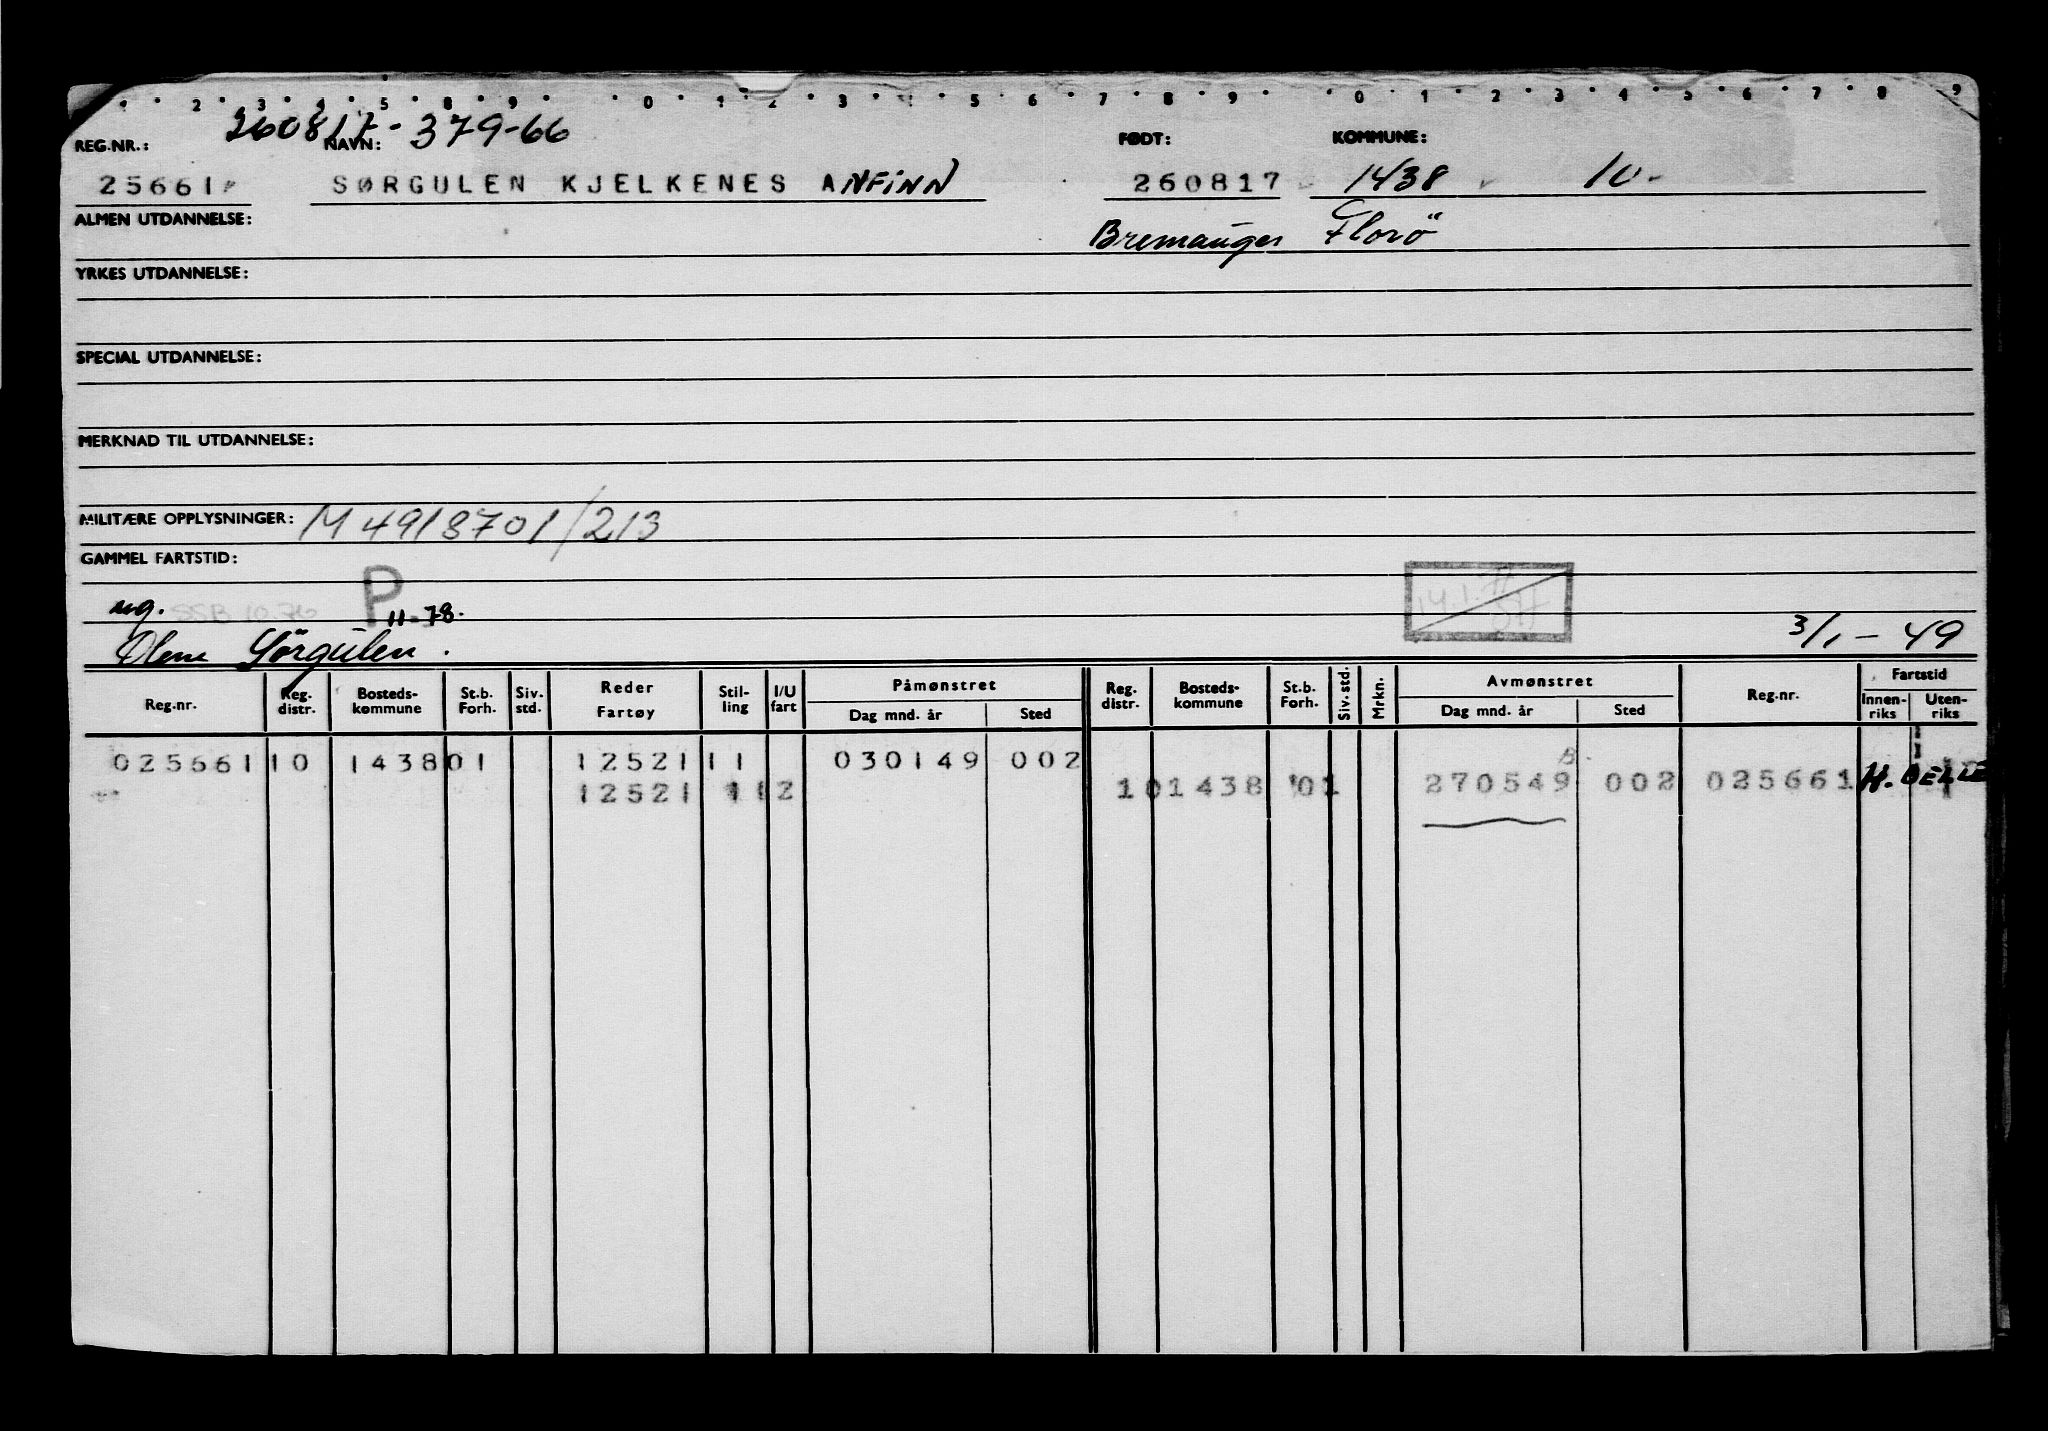 1 2 3 4 5 8 9 0 1 2 3 4 5 6 7 8 9 0 1 2 3 4 5 6 7 8 9
260817-379-66
REG.NR.: NAVN: FØDT: KOMMUNE:
25661 SØRGULEN KJELKENES ANFINN 260817 1438 10-
ALMEN UTDANNELSE: Bremanger Florö
YRKES UTDANNELSE:
SPECIAL UTDANNELSE:
MERKNAD TIL UTDANNELSE:
MILITÆRE OPPLYSNINGER: M 4918701/213
GAMMEL FARTSTID:
ug. SSB 10.76 P 11-78. 14.1.
Olene Sörgulen. 3/1-49
Reg.nr. Reg. distr. Bosteds-kommune St.b. Forh. Siv. std. Reder Fartøy Stil-ling I/U fart Påmønstret Dag mnd. år Sted Reg. distr. Bosteds-kommune St.b. Forh. Siv. std. Mrkn. Avmønstret Dag mnd. år Sted Reg.nr. Fartstid Innen-riks Uten-riks
025661 10 1438 01 12521 11 030149 002
12521 11 2 10 1438 01 270549 B. 002 025661 H.